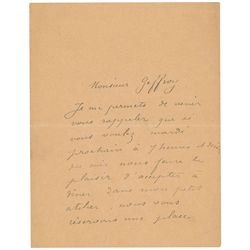 Monsieur Geffroy
Je me permets de venir
vous rappeler que si
vous voulez mardi
prochain à 7 heures et demie
nous faire le
plaisir d'accepter à
dîner dans mon petit
atelier nous vous
réservons une place